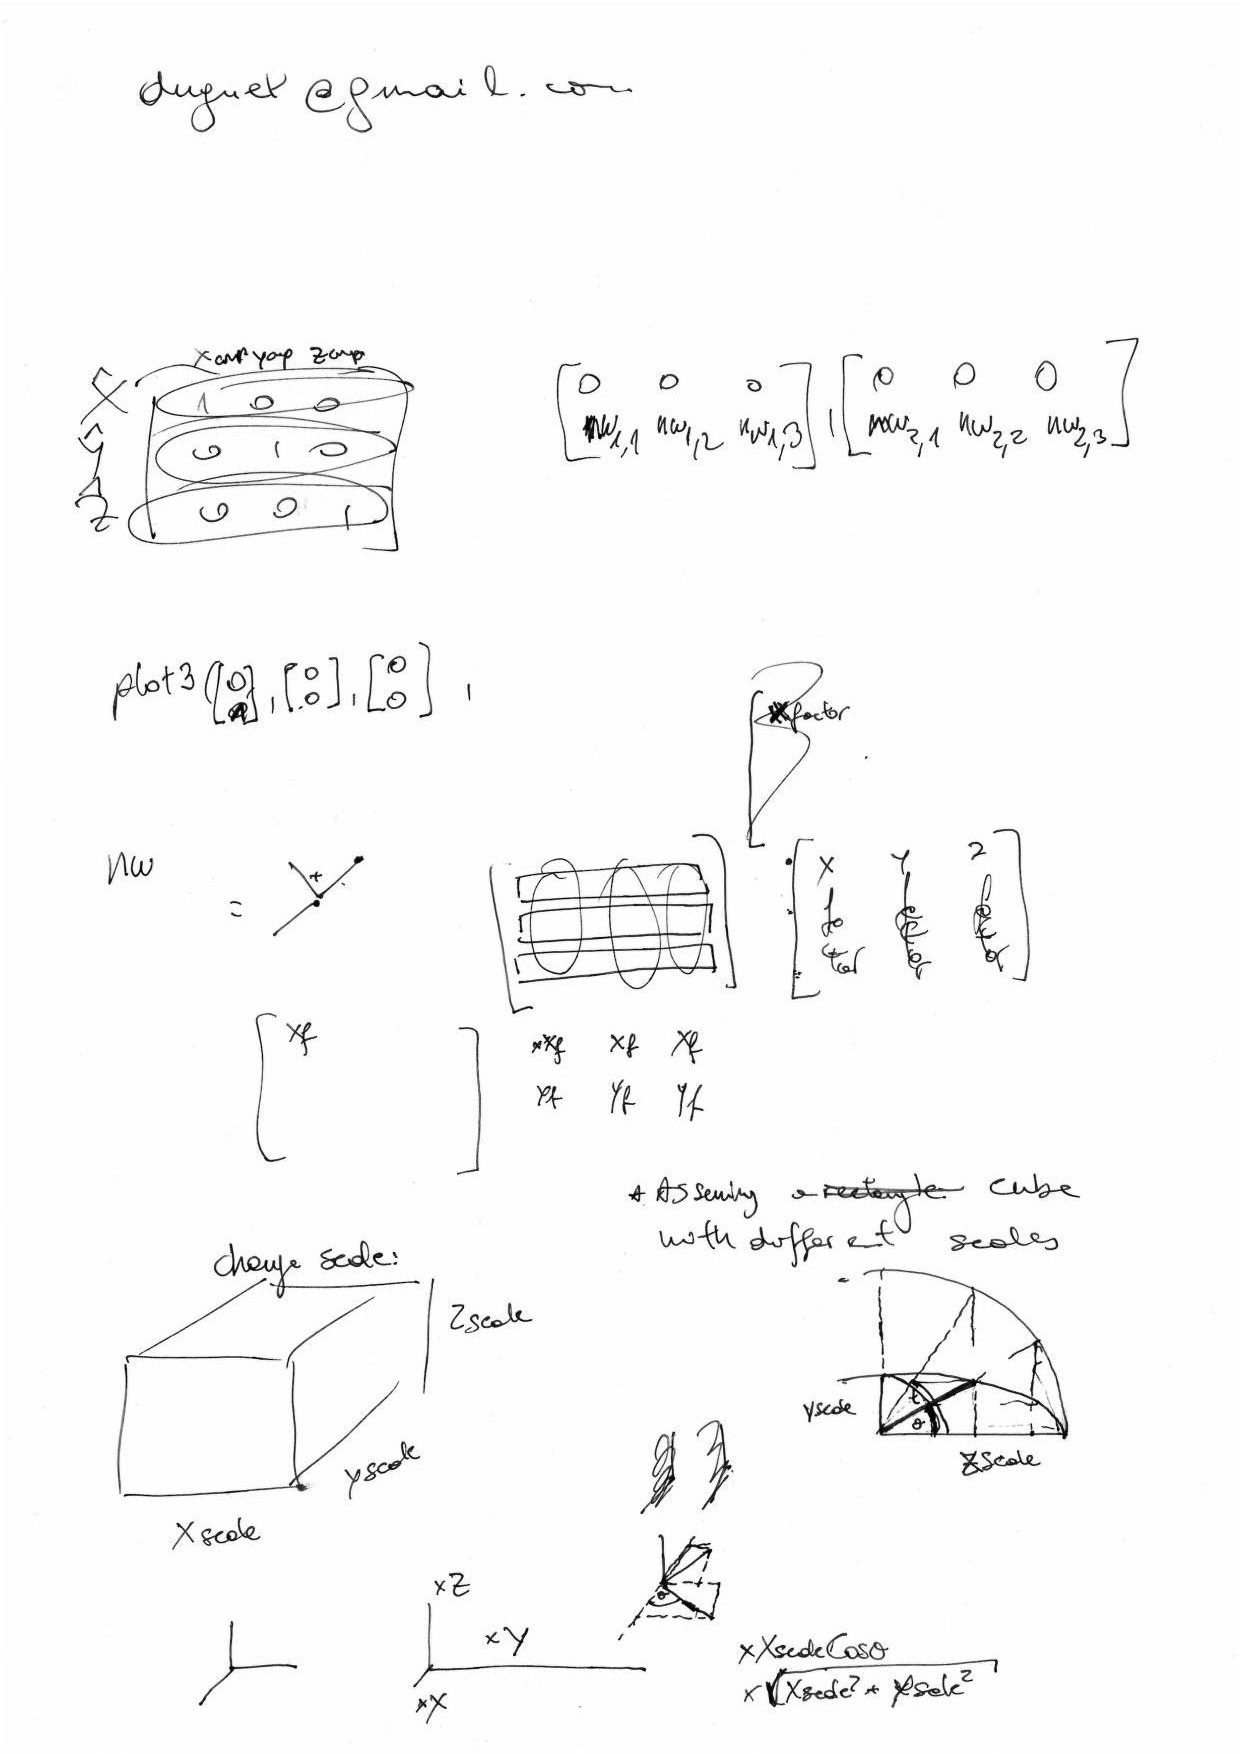 duguet@gmail.com
Xcomp ycomp Zcomp
X 1 0 0
Y 0 1 0
Z 0 0 1
[0 0 0], [0 0 0]
nw1,1 nw1,2 nw1,3 nw2,1 nw2,2 nw2,3
plot3([0], [0], [0],
0 0
Xfactor
nw
=
X Y Z
factor factor factor
Xf
xXf Xf Xf
Yf Yf Yf
* Assuming a rectangle cube
with different scales
change scale:
Zscale
yscale
Zscale
yscale
Xscale
θ
xZ
xY
xX
xXscaleCosθ
x√Xscale² + Yscale²